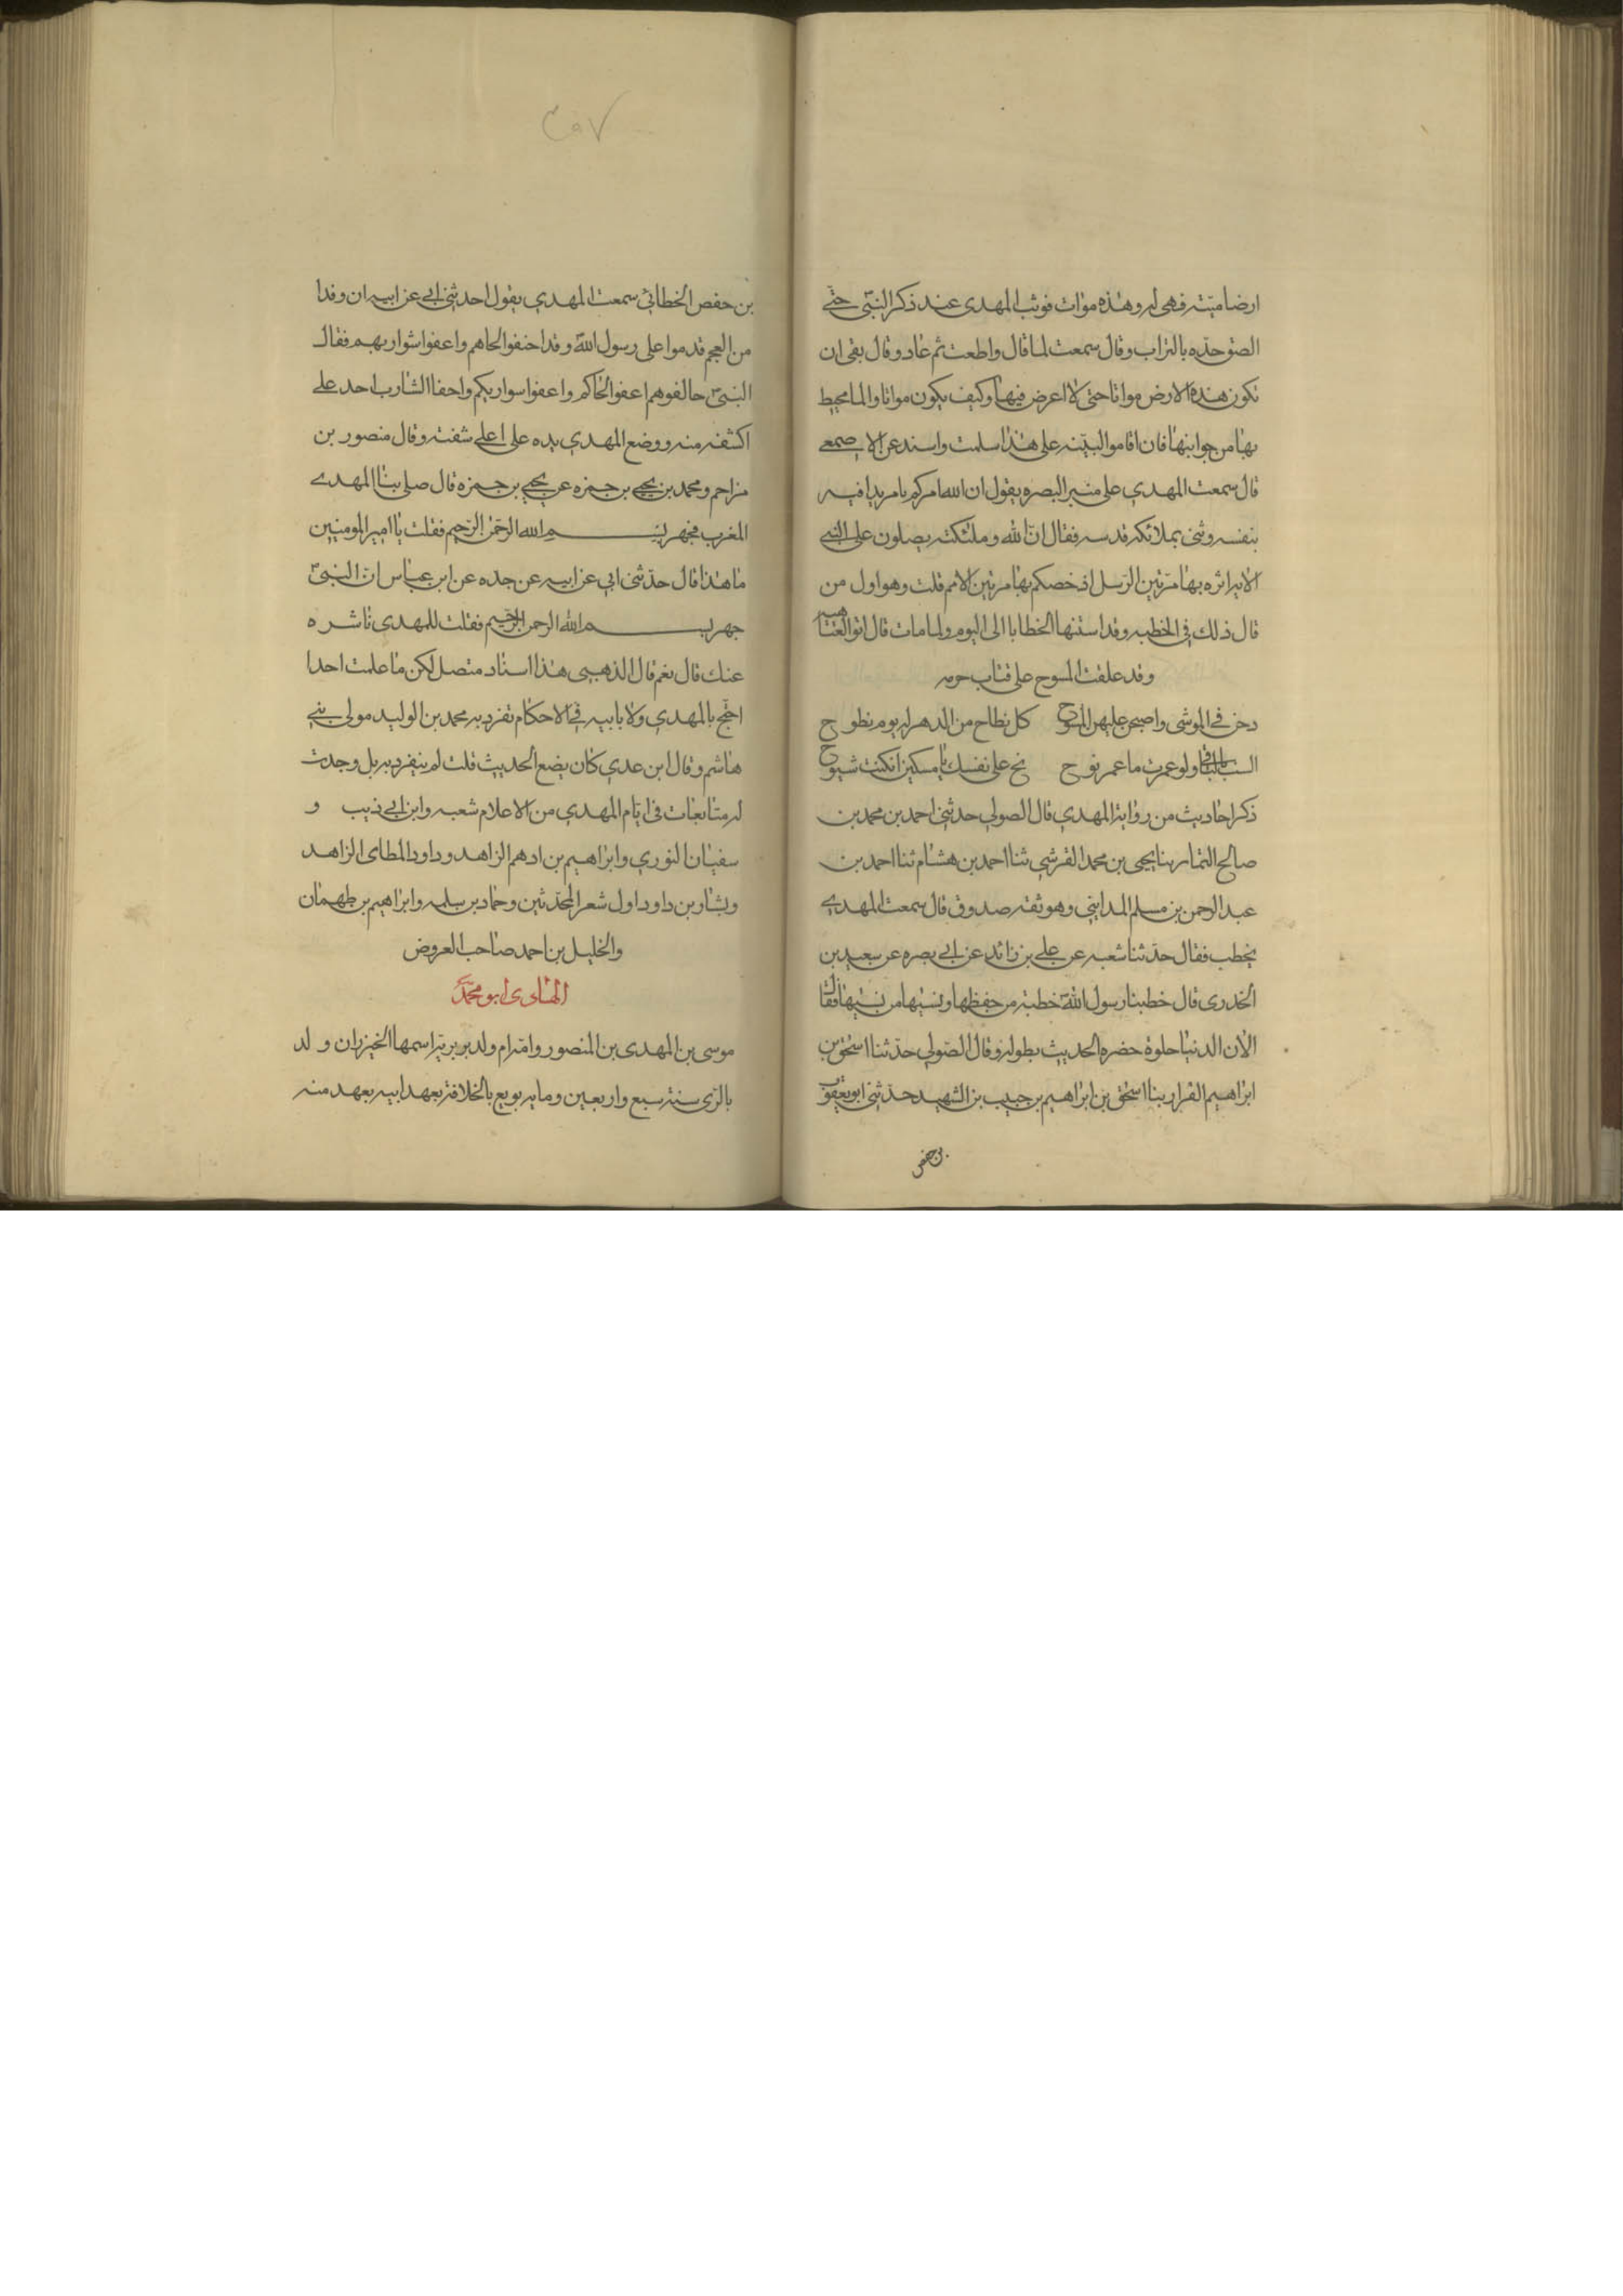 ارضا ميتة فهى له وهذه موات فوثب المهدى عند ذكر النبى حتى
الصق خده بالتراب وقال سمعت لما قال واطعت ثم عاد وقال بقى ان
تكون هذه الارض مواتا حتى لا اعرض فيها وكيف يكون مواتا والما محيط
بها من جوانبها فان اقاموا البينه على هذا سلمت واسند عن الاصمعي
قال سمعت المهدي على منبر البصره يقول ان الله امركم بامر بدا فيه
بنفسه وثنى بملائكة قدسه فقال ان الله وملئكته يصلون على النبي
الايه اثره بها من بين الرسل اذ خصكم بها من بين الامم قلت وهو اول من
قال ذلك فى الخطبه وقد استنها الخطبا الى اليوم ولما مات قال ابو العتاهيه
وقد علقت المسوح على قباب حرمه
رحن فى الموشى واصبحن عليهن المسوح كل نطاح من الدهر له يوم نطوح
لست بالباقى ولو عمرت ما عمر نوح نح على نفسك يا مسكين ان كنت تنوح
ذكر احاديث من رواية المهدي قال الصولي حدثني احمد بن محمد بن
صالح التمار بنا يحيى بن محمد القرشي ثنا احمد بن هشام ثنا احمد بن
عبد الرحمن بن مسلم المدايني وهو ثقه صدوق قال سمعت المهدي
يخطب فقال حدثنا شعبه عن علي بن زائد عن ابي بصره عن سعيد بن
الخدرى قال خطبنا رسول الله خطبة من حفظها ونسيها من نسيها فقال
الا ان الدنيا حلوة خضره الحديث بطوله وقال الصولي حدثنا اسحق بن
ابراهيم القزاز بنا اسحق بن ابراهيم بن حبيب بن الشهيد حدثني ابو يعقوب
بن حفص
٣٥٧
بن حفص الخطابي سمعت المهدي يقول احدثني ابي عن ابيه ان وفدا
من العجم قدموا على رسول الله وقد احفوا لحاهم واعفوا شواربهم فقال
النبي خالفوهم اعفوا لحاكم واحفوا شواربكم واحفا الشارب اخذ على
اكشفه منه ووضع المهدي يده على اعلى شفته وقال منصور بن
مزاحم ومحمد بن يحيي بن حمزه عن يحيي بن حمزه قال صلى بنا المهدي
المغرب فجهر ببسم الله الرحمن الرحيم فقلت يا امير المومنين
ما هذا قال حدثنى ابي عن ابيه عن جده عن ابن عباس ان النبى
جهر ببسم الله الرحمن الرحيم فقلت للمهدى ناثره
عنك قال نعم قال الذهبى هذا اسناد متصل لكن ما علمت احدا
احتج بالمهدي ولا بابيه فى الاحكام تفرد به محمد بن الوليد مولى بني
هاشم وقال ابن عدي كان يضع الحديث قلت لم ينفرد به بل وجدت
له متابعات فى ايام المهدي من الاعلام شعبه وابن ابي ذيب و
سفيان الثوري وابراهيم بن ادهم الزاهد وداود الطاى الزاهد
وبشار بن داود اول شعر المحدثين وحماد بن سلمه وابراهيم بن طهمان
والخليل بن احمد صاحب العروض
الهادى ابو محمد
موسى بن المهدى بن المنصور وامه ام ولد بربرية اسمها الخيزران ولد
بالرى سنة سبع واربعين ومايه بويع بالخلافة بعهد ابيه بعهد منه